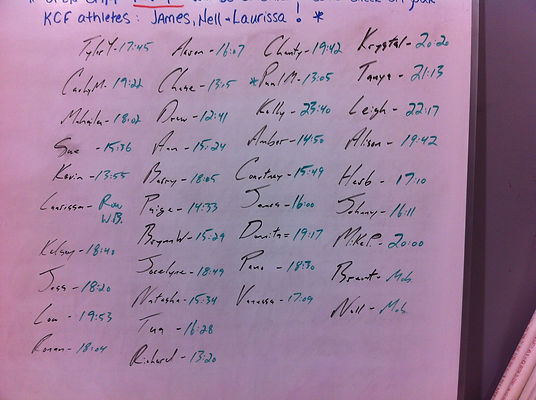 KCF athletes: James, Nell + Laurissa! *
Tyler Y - 17:45 Aaron - 16:07 Chanty - 19:42 Krystal - 20:20
Carly M - 19:22 Chase - 13:15 *Paul M - 13:05 Tanya - 21:13
Mikaila - 18:02 Drew - 12:41 Kelly - 23:40 Leigh - 22:17
Sue - 15:36 Ann - 15:24 Amber - 14:50 Alison - 19:42
Kevin - 13:55 Barry - 18:05 Courtney - 15:49 Herb - 17:10
Laurissa - Row Paige - 14:33 James - 16:00 Johnny - 16:11
W.B. Brynn W - 15:29 Danita - 19:17 Mike P. - 20:00
Kelsey - 18:40 Jocelyne - 18:49 Pano - 18:30 Brant - Mob
Jess - 18:20 Natasha - 15:34 Vanessa - 17:09 Nell - Mob
Lou - 19:53 Tua - 16:28
Ronan - 18:04 Richard - 13:20